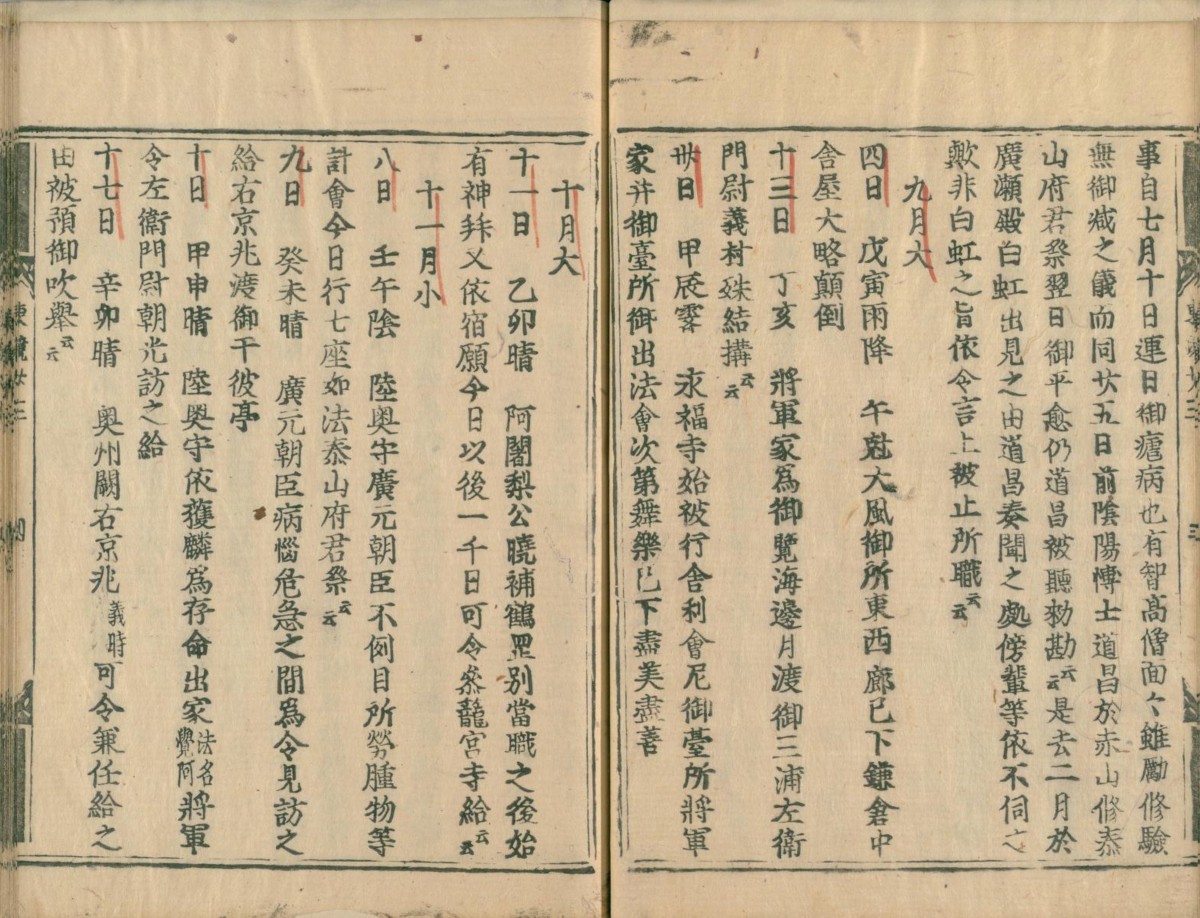 事自七月十日連日御瘧病也有智髙僧面々雖勵修驗
無御减之儀而同廿五日前隂陽博士道昌於赤山修泰
山府君祭翌日御平愈仍道昌被聽勅勘云云是去二月於
廣瀬殿白虹出見之由道昌奏聞之處傍輩等依不伺之
歟非白虹之旨依令言上被止所職云云
九月大
四日 戊寅雨降 午尅大風御所東西廊已下鎌倉中
舎屋大略顛倒
十三日 丁亥 將軍家爲御覽海邊月渡御三浦左衛
門尉義村殊結搆云云
卅日 甲辰霽 永福寺始被行舎利會尼御臺所將軍
家并御臺所御出法會次第舞樂已下盡美盡善
十月大
十一日 乙卯晴 阿闍梨公曉補鶴罡別當職之後始
有神拜又依宿願今日以後一千日可令叅籠宮寺給云云
十一月小
八日 壬午陰 陸奥守廣元朝臣不例目所勞腫物等
計會今日行七座如法泰山府君祭云云
九日 癸未晴 廣元朝臣病惱危急之間爲令見訪之
給右京兆渡御于彼亭
十日 甲申晴 陸奥守依獲麟爲存命出家法名覺阿將軍
令左衛門尉朝光訪之給
十七日 辛卯晴 奥州闕右京兆義時可令兼任給之
由被預御吹擧云云
東鏡廿三 四